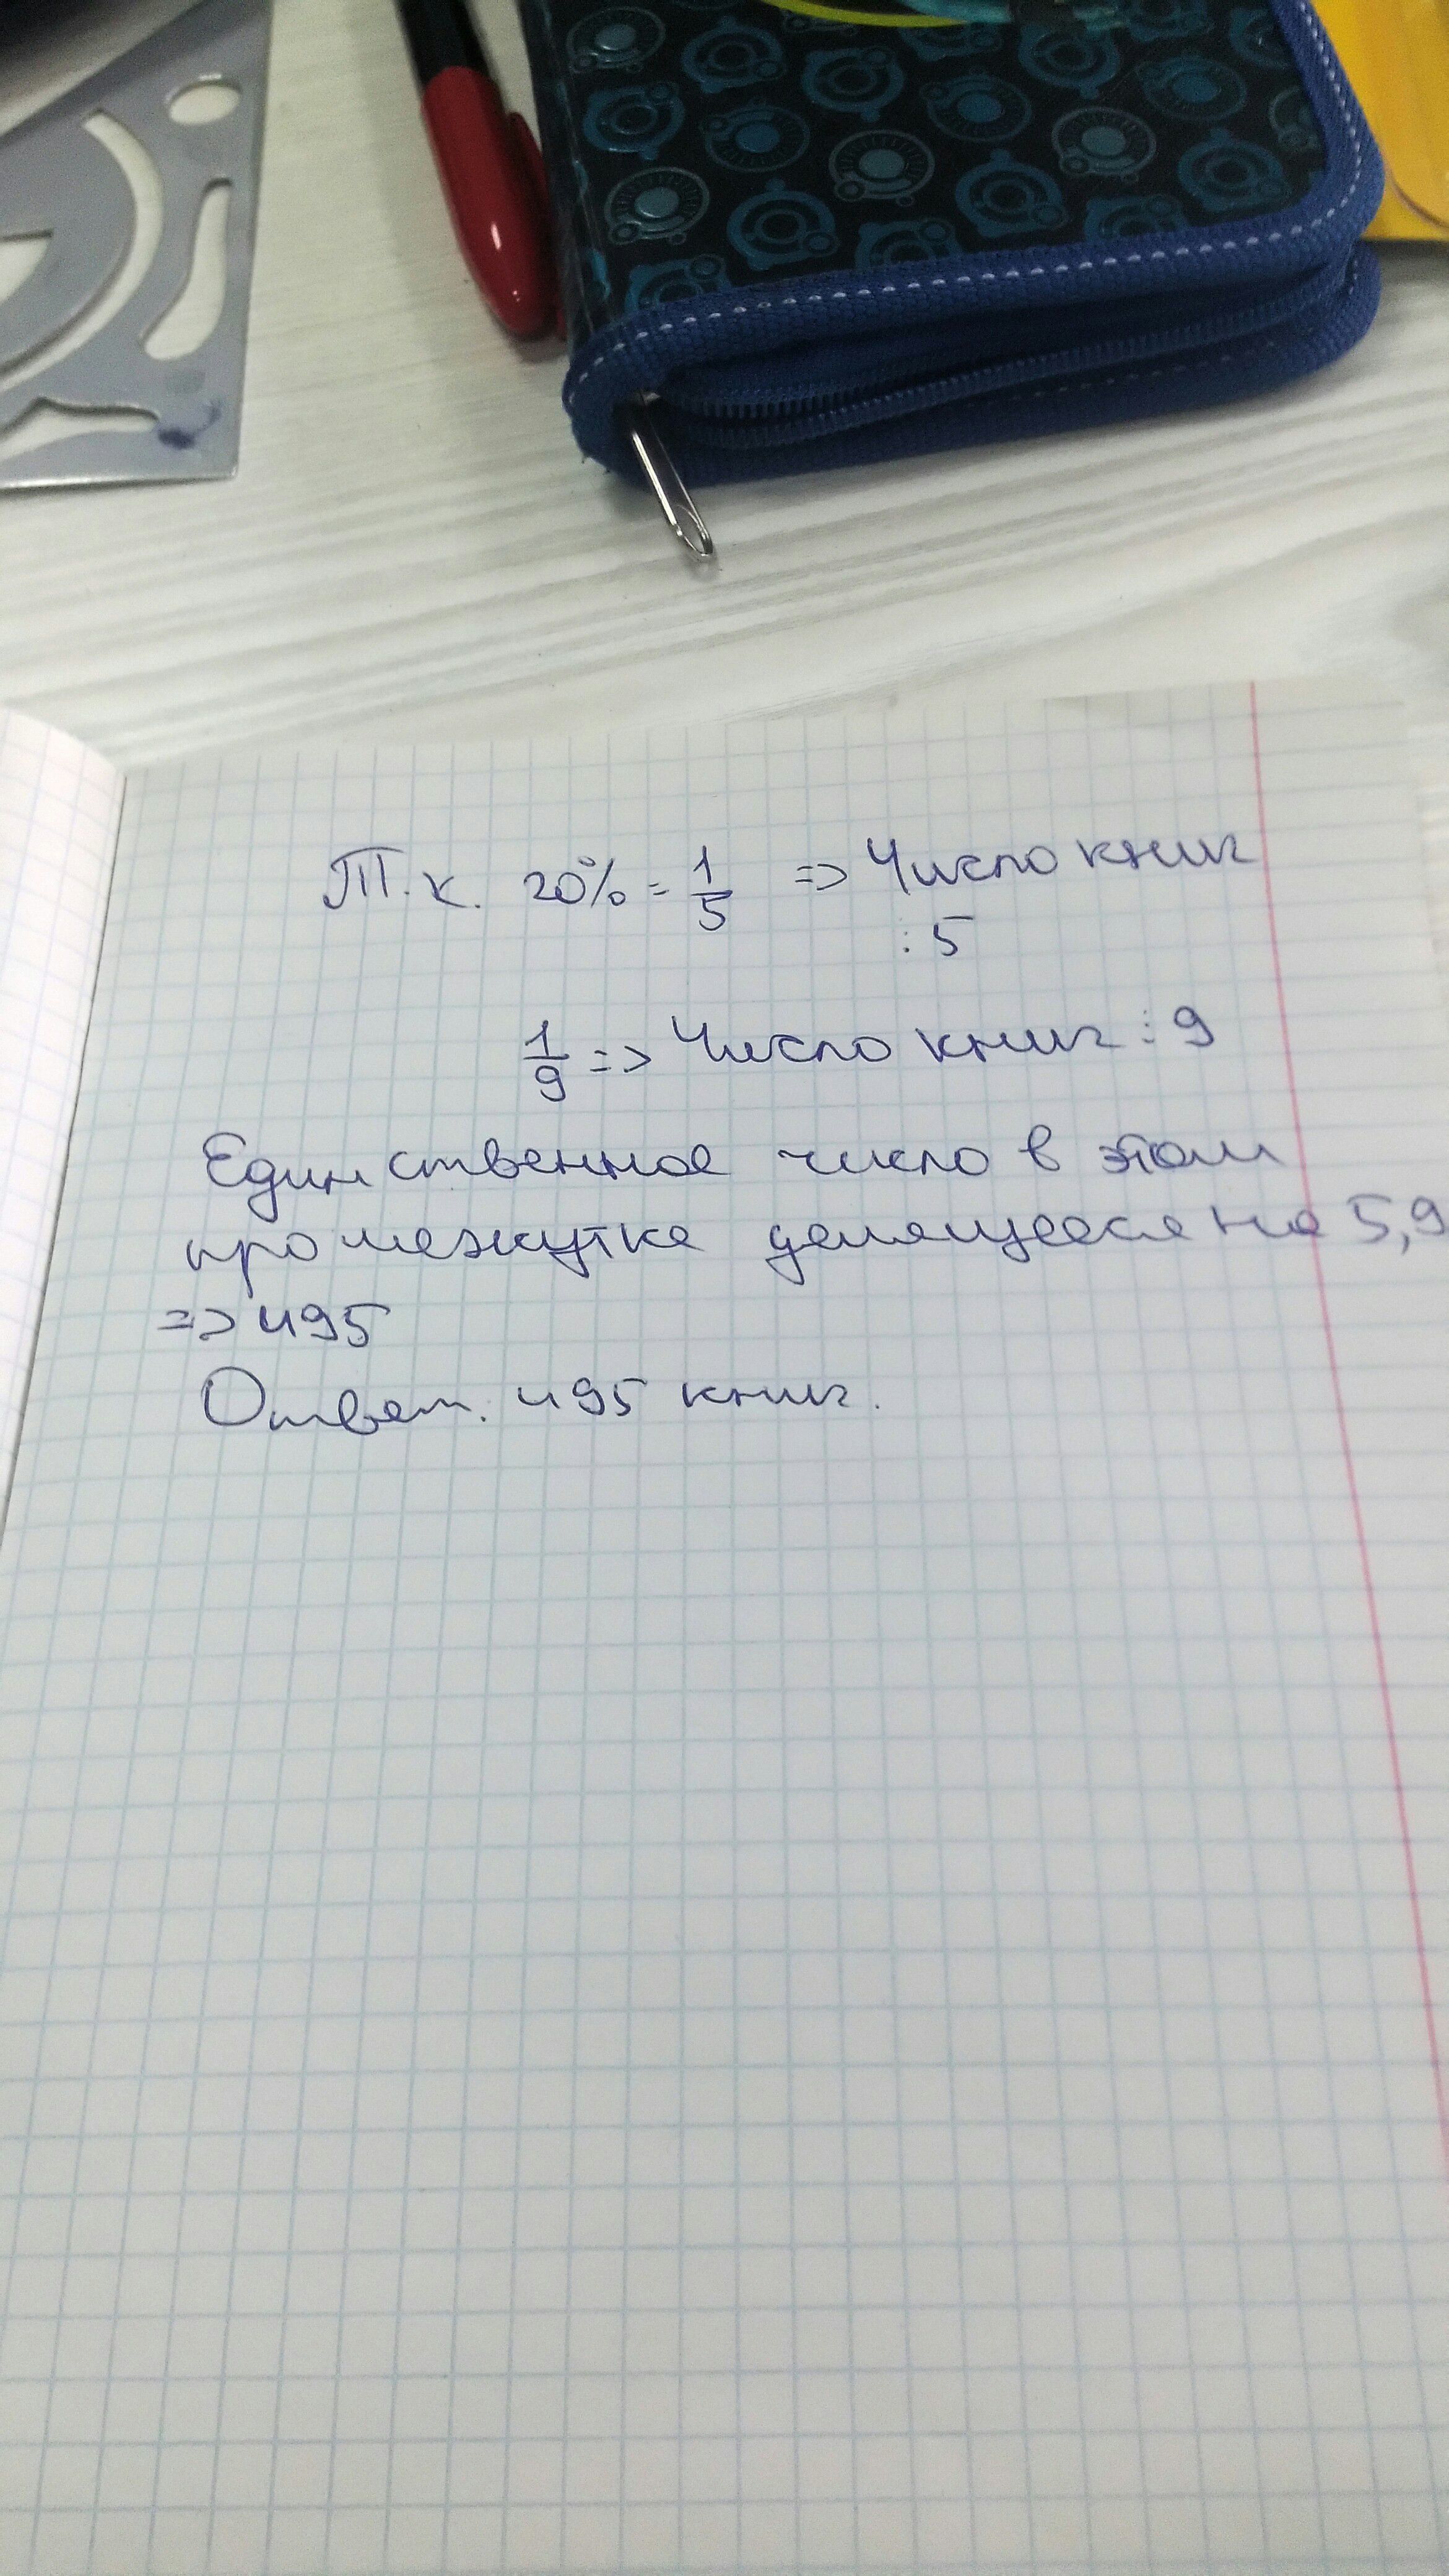 Т.к. 20% = 1/5 => Число книг
⋮ 5
1/9 => Число книг ⋮ 9
Единственное число в этом
промежутке делящееся на 5,9
=> 495
Ответ: 495 книг.